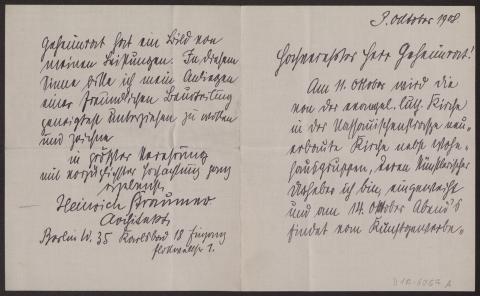 3. Oktober 1908.
Hochverehrter Herr Geheimrat!
Am 11. Oktober wird die
von der evangel. luth. Kirche
in der Nassauischenstrasse neu-
erbaute Kirche nebst Wohn-
hausgruppen, deren künstlerischer
Urheber ich bin, eingeweiht
und am 14. Oktober Abends
findet vom Kunstgewerbe-
Geheimrat hart ein Bild von
meinen Leistungen. In diesem
Sinne bitte ich mein Anliegen
einer freundlichen Beurteilung
geneigtest unterziehen zu wollen
und zeichne
in größter Verehrung
mit vorzüglichster Hochachtung ganz
ergebenst
Heinrich Straumer
Architekt
Berlin W. 35 Karlsbad 18 Eingang
1.